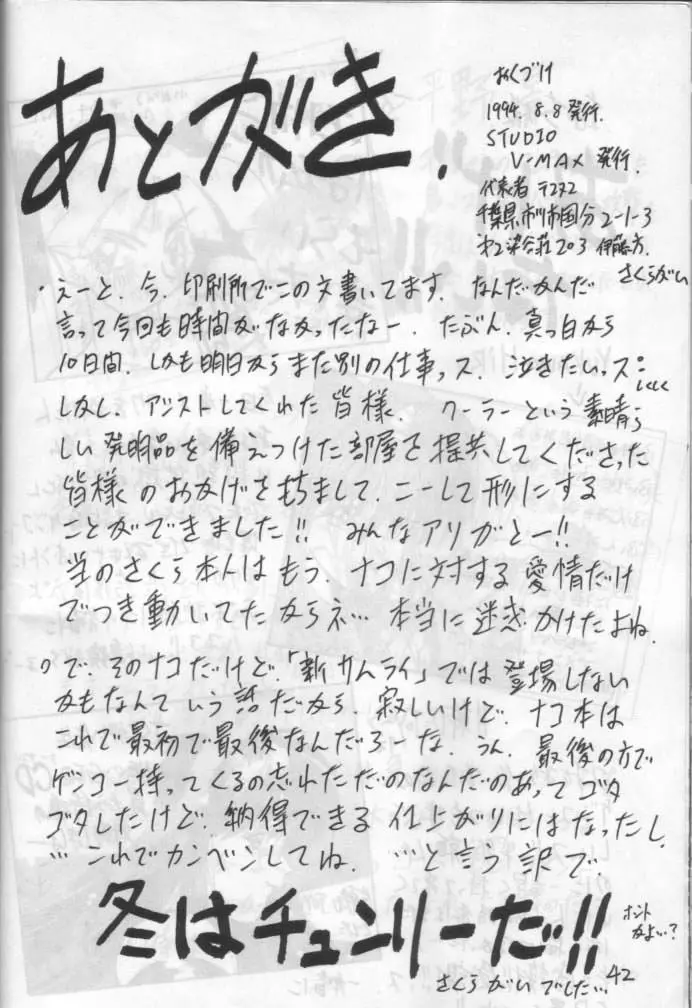 あとがき.
おくづけ
1994. 8. 8 発行.
STUDIO
V-MAX 発行.
代表者
千葉県市川市国分2-1-3
第2染谷荘203 伊藤方.
さくらがい
・えーと. 今. 印刷所でこの文書いてます. なんだかんだ
言って今回も時間がなかったなー. たぶん. 真っ白から
10日間. しかも明日からまた別の仕事ッス. 泣きたいッス:
しかし. アシストしてくれた皆様. クーラーという素晴ら
しい発明品を備えつけた部屋を提共してくださった
皆様のおかげを持ちまして. こーして形にする
ことができました!! みんなアリガとー!!
当のさくら本人はもう. ナコに対する愛情だけ
でつき動いてたからネ… 本当に迷惑かけたよね.
○で. そのナコだけど.「新サムライ」では登場しない
かもなんていう話だから. 寂しいけど. ナコ本は
これで最初で最後なんだろーな. うん. 最後の方で
ゲンコー持ってくるの忘れただのなんだのあってゴタ
ゴタしたけど. 納得できる仕上がりにはなったし.
… これでカンベンしてね. …と言う訳で.
冬はチュンリーだ!!
ホント
かよ…?
さくらがいでした… 42